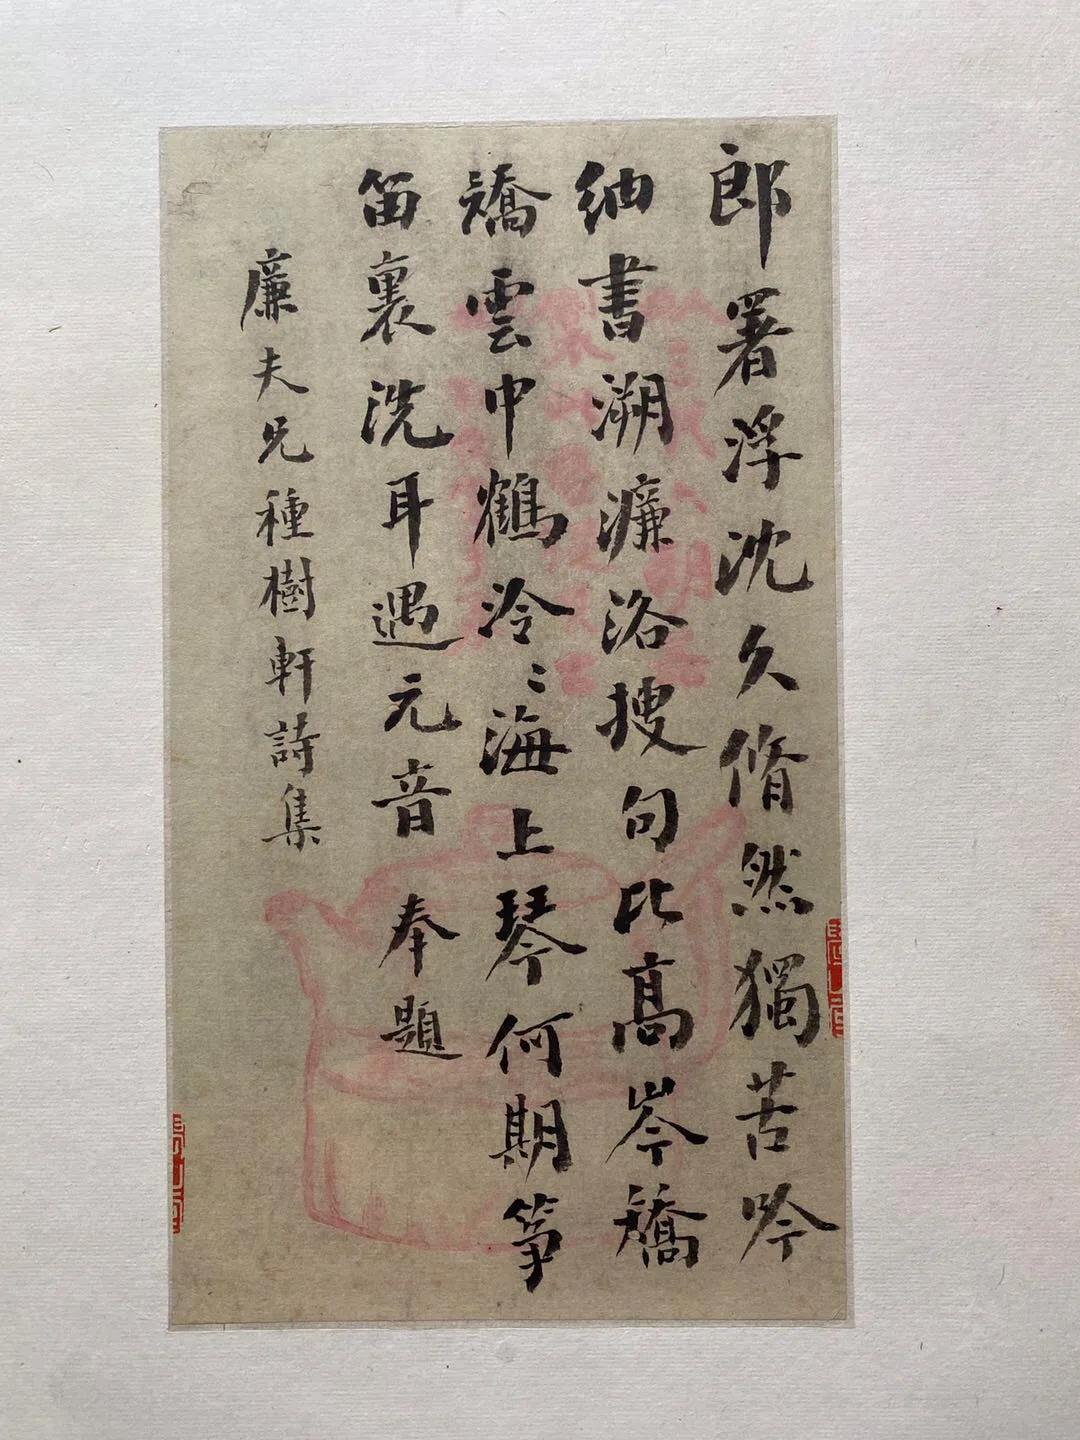 郎署浮沈久脩然獨苦吟
紬書溯濂洛搜句比高岑矯
矯雲中鶴泠〻海上琴何期箏
笛裏洗耳遇元音 奉題
廉夫兄種樹軒詩集